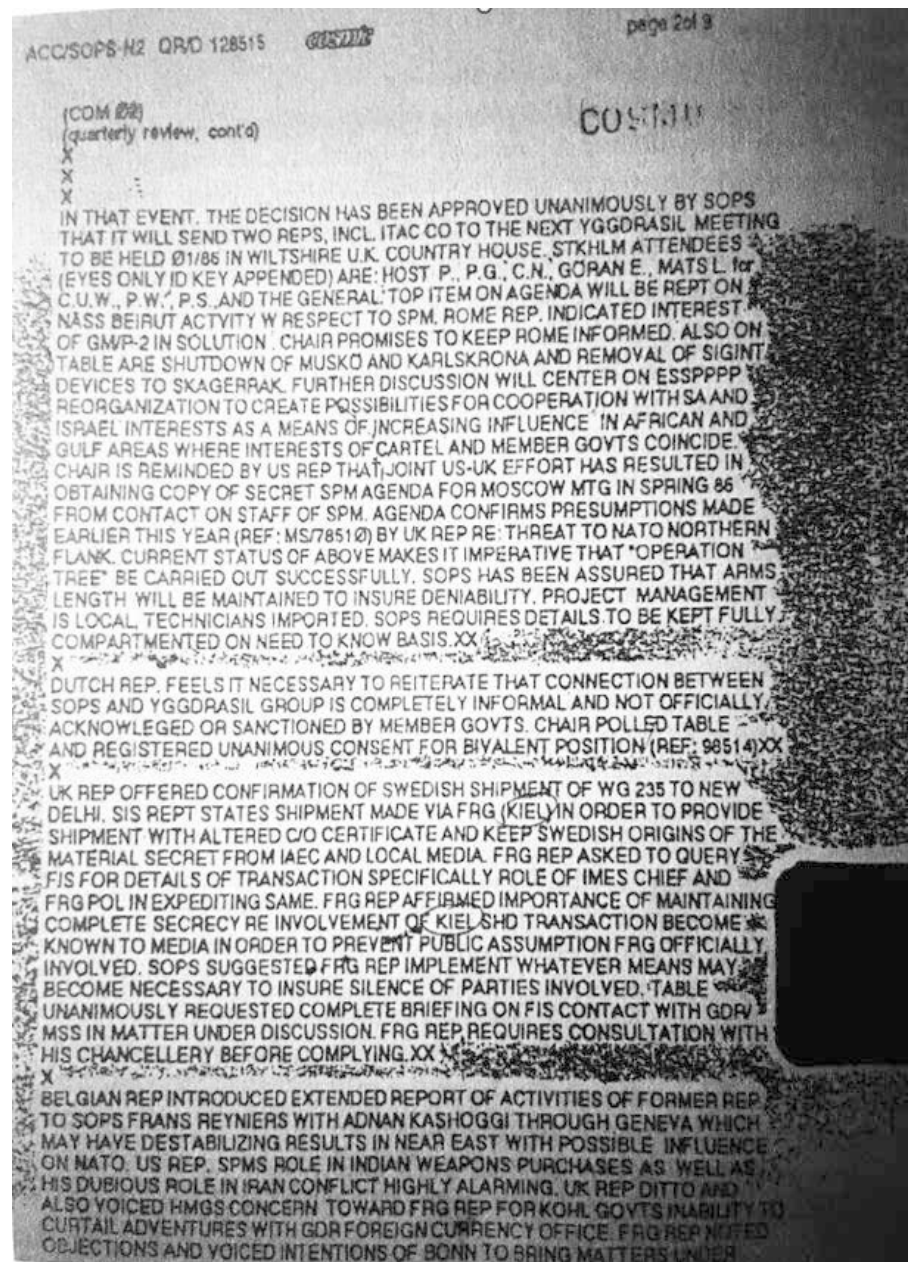 ACC/SOPS-N2 QR/D 128515 cosmic page 2of 9
(COM Ø2) COSMIC
(quarterly review, cont'd)
X
X
X
IN THAT EVENT. THE DECISION HAS BEEN APPROVED UNANIMOUSLY BY SOPS
THAT IT WILL SEND TWO REPS, INCL. ITAC CO TO THE NEXT YGGDRASIL MEETING
TO BE HELD Ø1/86 IN WILTSHIRE U.K. COUNTRY HOUSE. STKHLM ATTENDEES
(EYES ONLY ID KEY APPENDED) ARE: HOST P., P.G., C.N., GÖRAN E., MATS L. for
C.U.W., P.W., P.S. AND THE GENERAL. TOP ITEM ON AGENDA WILL BE REPT ON
NASS BEIRUT ACTVITY W RESPECT TO SPM. ROME REP. INDICATED INTEREST
OF GM/P-2 IN SOLUTION. CHAIR PROMISES TO KEEP ROME INFORMED. ALSO ON
TABLE ARE SHUTDOWN OF MUSKÖ AND KARLSKRONA AND REMOVAL OF SIGINT
DEVICES TO SKAGERRAK. FURTHER DISCUSSION WILL CENTER ON ESSPPPP
REORGANIZATION TO CREATE POSSIBILITIES FOR COOPERATION WITH SA AND
ISRAEL INTERESTS AS A MEANS OF INCREASING INFLUENCE IN AFRICAN AND
GULF AREAS WHERE INTERESTS OF CARTEL AND MEMBER GOVTS COINCIDE.
CHAIR IS REMINDED BY US REP THAT JOINT US-UK EFFORT HAS RESULTED IN
OBTAINING COPY OF SECRET SPM AGENDA FOR MOSCOW MTG IN SPRING 86
FROM CONTACT ON STAFF OF SPM. AGENDA CONFIRMS PRESUMPTIONS MADE
EARLIER THIS YEAR (REF: MS/7851Ø) BY UK REP RE: THREAT TO NATO NORTHERN
FLANK. CURRENT STATUS OF ABOVE MAKES IT IMPERATIVE THAT "OPERATION
TREE" BE CARRIED OUT SUCCESSFULLY. SOPS HAS BEEN ASSURED THAT ARMS
LENGTH WILL BE MAINTAINED TO INSURE DENIABILITY. PROJECT MANAGEMENT
IS LOCAL, TECHNICIANS IMPORTED. SOPS REQUIRES DETAILS TO BE KEPT FULLY
COMPARTMENTED ON NEED TO KNOW BASIS.XX
X
DUTCH REP. FEELS IT NECESSARY TO REITERATE THAT CONNECTION BETWEEN
SOPS AND YGGDRASIL GROUP IS COMPLETELY INFORMAL AND NOT OFFICIALLY
ACKNOWLEGED OR SANCTIONED BY MEMBER GOVTS. CHAIR POLLED TABLE
AND REGISTERED UNANIMOUS CONSENT FOR BIVALENT POSITION (REF: 98514)XX
X
UK REP OFFERED CONFIRMATION OF SWEDISH SHIPMENT OF WG 235 TO NEW
DELHI. SIS REPT STATES SHIPMENT MADE VIA FRG (KIEL) IN ORDER TO PROVIDE
SHIPMENT WITH ALTERED C/O CERTIFICATE AND KEEP SWEDISH ORIGINS OF THE
MATERIAL SECRET FROM IAEC AND LOCAL MEDIA. FRG REP ASKED TO QUERY
FIS FOR DETAILS OF TRANSACTION SPECIFICALLY ROLE OF IMES CHIEF AND
FRG POL IN EXPEDITING SAME. FRG REP AFFIRMED IMPORTANCE OF MAINTAINING
COMPLETE SECRECY RE INVOLVEMENT OF KIEL SHD TRANSACTION BECOME
KNOWN TO MEDIA IN ORDER TO PREVENT PUBLIC ASSUMPTION FRG OFFICIALLY
INVOLVED. SOPS SUGGESTED FRG REP IMPLEMENT WHATEVER MEANS MAY
BECOME NECESSARY TO INSURE SILENCE OF PARTIES INVOLVED. TABLE
UNANIMOUSLY REQUESTED COMPLETE BRIEFING ON FIS CONTACT WITH GDR/
MSS IN MATTER UNDER DISCUSSION. FRG REP REQUIRES CONSULTATION WITH
HIS CHANCELLERY BEFORE COMPLYING.XX
X
BELGIAN REP INTRODUCED EXTENDED REPORT OF ACTIVITIES OF FORMER REP
TO SOPS FRANS REYNIERS WITH ADNAN KASHOGGI THROUGH GENEVA WHICH
MAY HAVE DESTABILIZING RESULTS IN NEAR EAST WITH POSSIBLE INFLUENCE
ON NATO. US REP. SPMS ROLE IN INDIAN WEAPONS PURCHASES AS WELL AS
HIS DUBIOUS ROLE IN IRAN CONFLICT HIGHLY ALARMING. UK REP DITTO AND
ALSO VOICED HMGS CONCERN TOWARD FRG REP FOR KOHL GOVTS INABILITY TO
CURTAIL ADVENTURES WITH GDR FOREIGN CURRENCY OFFICE. FRG REP NOTED
OBJECTIONS AND VOICED INTENTIONS OF BONN TO BRING MATTERS UNDER